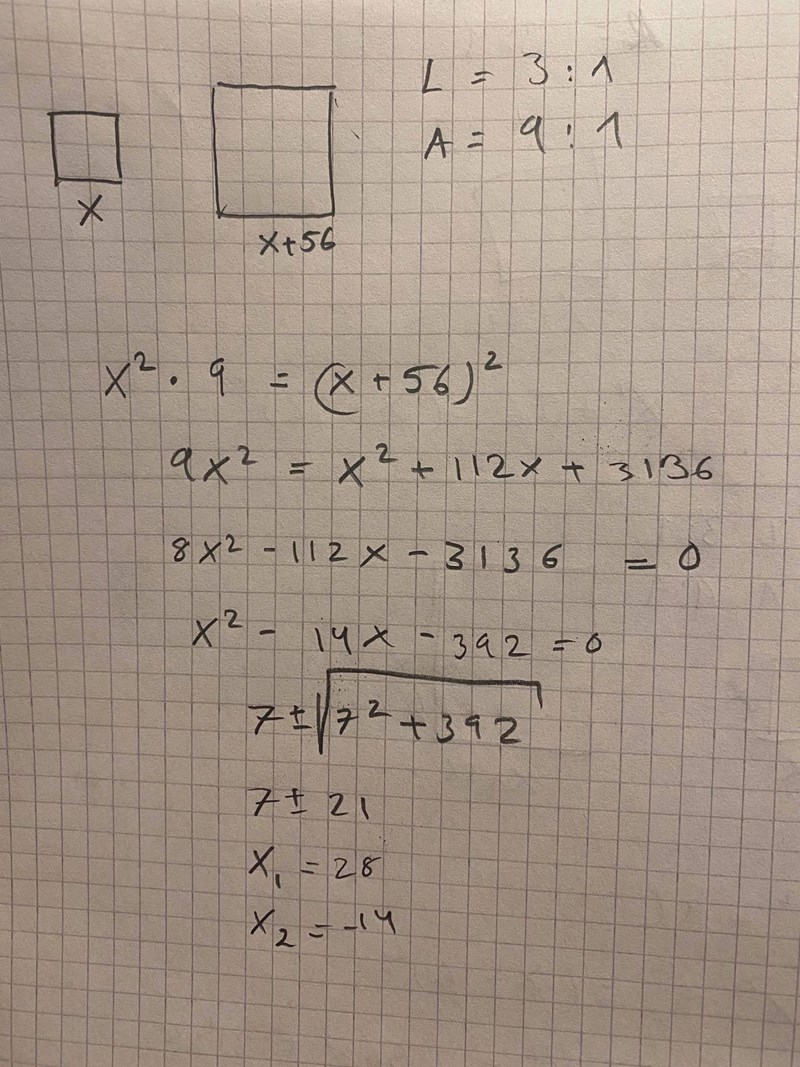 L = 3:1
A = 9:1
x
x+56
x² · 9 = (x+56)²
9x² = x² + 112x + 3136
8x² - 112x - 3136 = 0
x² - 14x - 392 = 0
7 ± √7² + 392
7 ± 21
x₁ = 28
x₂ = -14